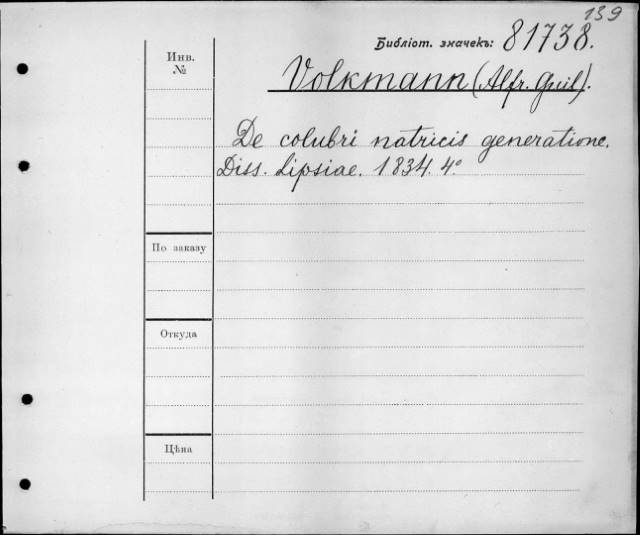 139
Библіот. значекъ: 81738.
Инв.
№
Volkmann (Alfr. Guil).
De colubri natricis generatione.
Diss. Lipsiae. 1834. 4°
По заказу
Откуда
Цѣна